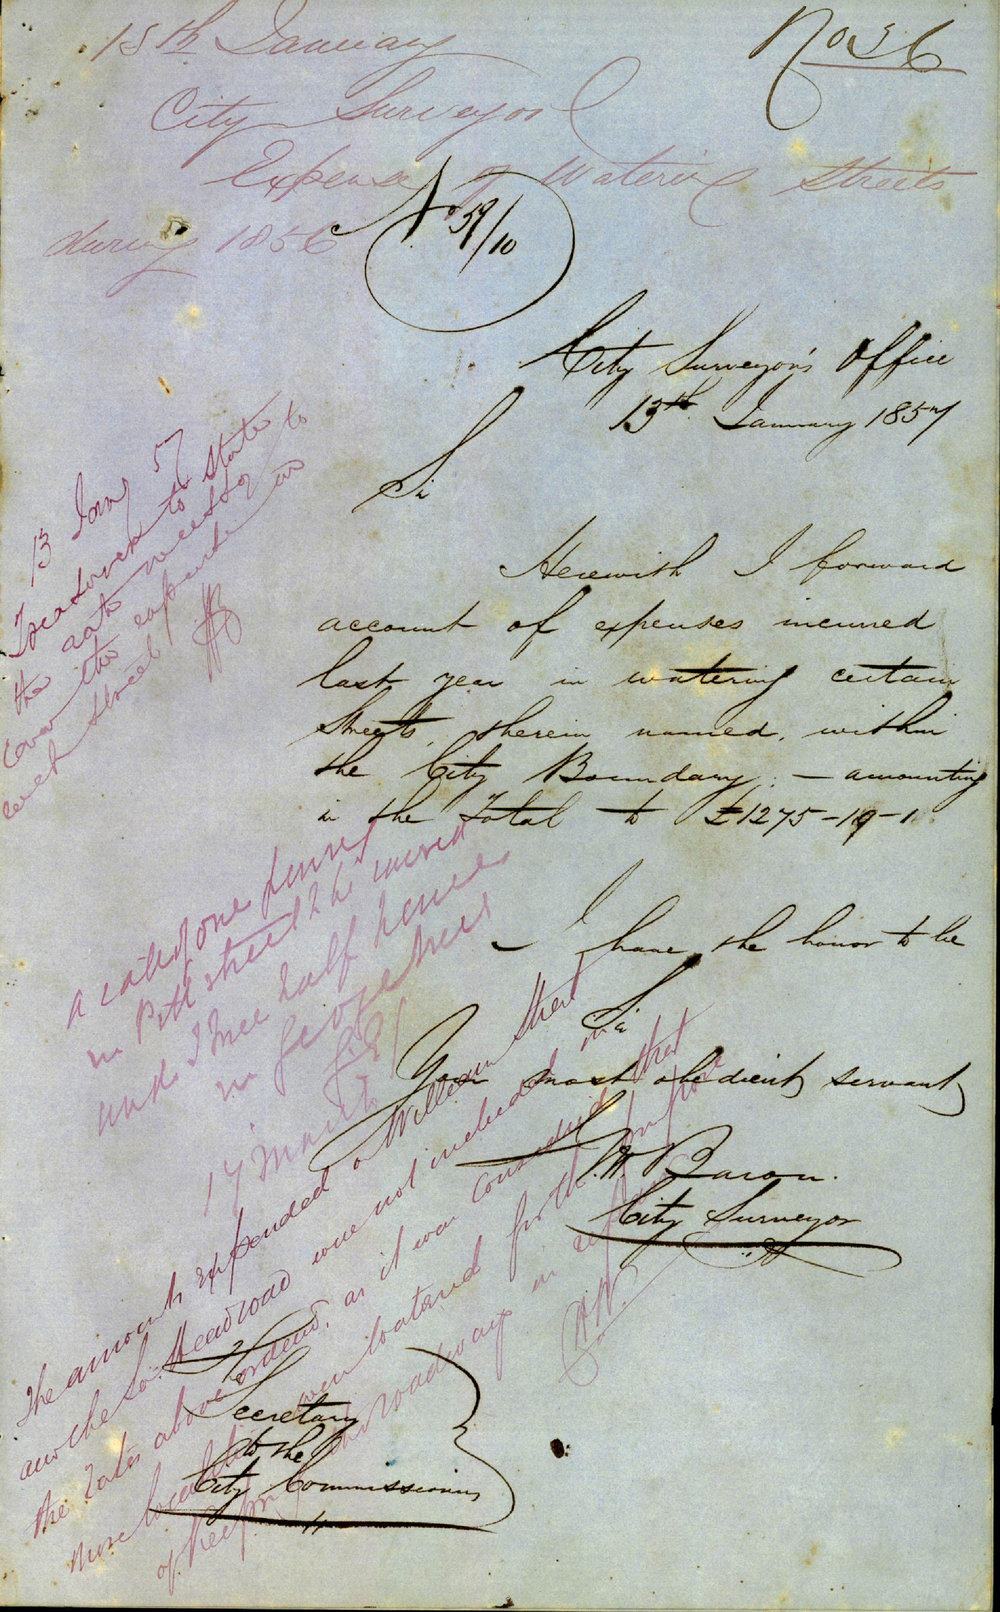 13th January
No 36
City Surveyor
Expense of Watering Streets
during 1856
No 59/10
City Surveyor's Office
13th January 1857
Sir
Herewith I forward
account of expenses incurred
last year in watering certain
Streets, therein named, within
the City Boundary; — amounting
in the Total to £1275-19-1.
I have the honor to be
Sir
Your most obedient servant
W. Baron.
City Surveyor
The
Secretary
to the
City Commissioners
13 Jany 57
to state
the rate necessary to
cover the expense in
each street
A rate of one penny
in Pitt street to be levied
and three half pence
in George Street
17 March
The amounts expended on William Street
and the So. Head road were not included in
the rates above ordered, as it was considered that
these localities were watered for the purpose
of keeping the roadway in